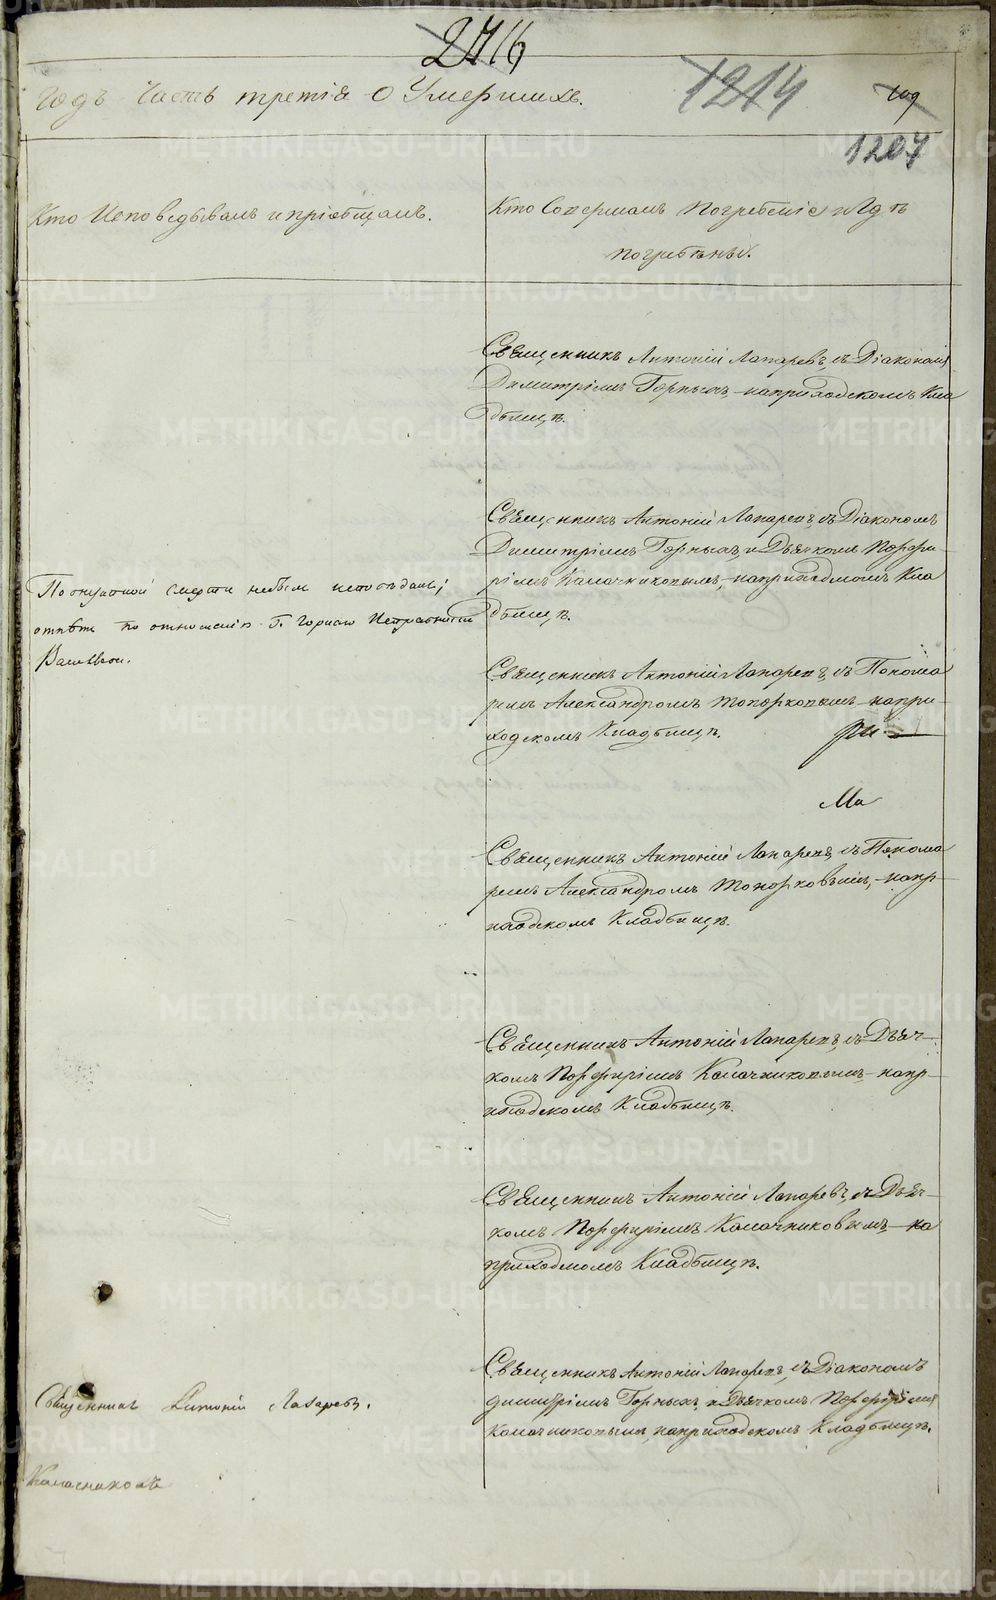 2716
годъ Часть третія О Умершихъ.
1214
109
1207
Кто Исповѣдывалъ и пріобщалъ.
Кто Совершалъ Погребеніе и Гдѣ
погребены.
Священникъ Антоній Лапаревъ, съ Діакономъ
Димитріемъ Горныхъ, на приходскомъ Кла
дбищѣ.
Священникъ Антоній Лапаревъ, съ Діакономъ
Димитріемъ Горныхъ, и Дьячкомъ Порфи-
ріемъ Калачниковымъ, на приходскомъ Кла
дбищѣ.
По смерти небылъ исповѣданъ;
отпѣтъ по отношенію Г. Горнаго Исправника
Священникъ Антоній Лапаревъ, съ Понома
ремъ Александромъ Топорковымъ на при-
ходскомъ Кладбищѣ.
Ма
Священникъ Антоній Лапаревъ, съ Понома
ремъ Александромъ Топорковымъ, на пр-
иходскомъ Кладбищѣ.
Священникъ Антоній Лапаревъ, съ Дьяч-
комъ Порфиріемъ Калачниковымъ на пр-
иходскомъ Кладбищѣ.
Священникъ Антоній Лапаревъ, съ Дьяч-
комъ Порфиріемъ Калачниковымъ на
приходскомъ Кладбищѣ.
Священникъ Антоній Лапаревъ, съ Діакономъ
Димитріемъ Горныхъ, и Дьячкомъ Порфиріемъ
Калачниковымъ, на приходскомъ Кладбищѣ.
Священникъ Антоній Лапаревъ.
Калачниковъ
METRIKI.GASO-URAL.RU